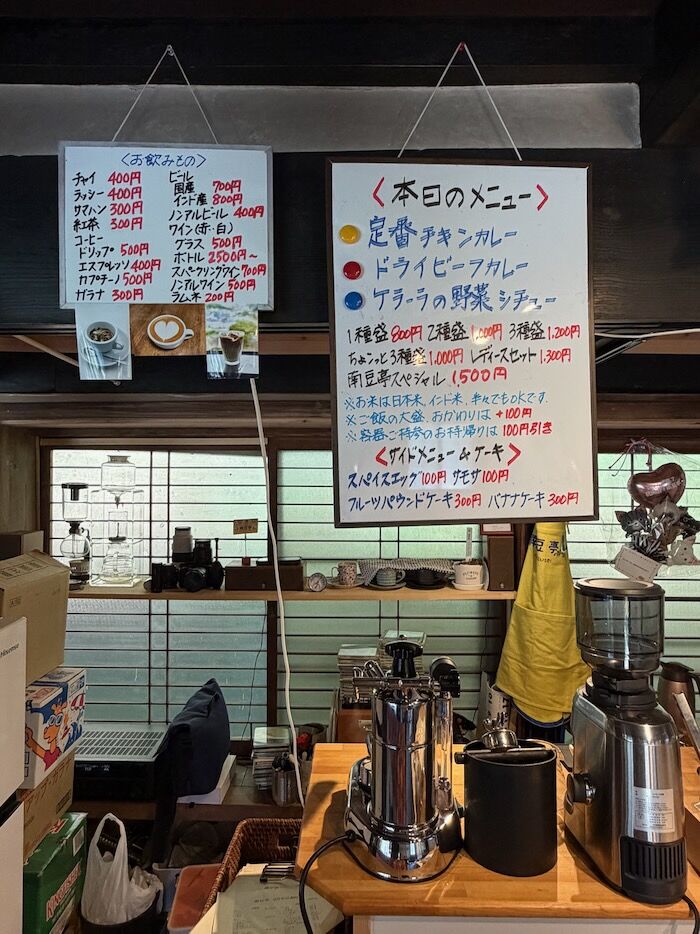 <お飲みもの>
チャイ 400円
ラッシー 400円
サマハン 300円
紅茶 300円
コーヒー
ドリップ 500円
エスプレッソ 400円
カプチーノ 500円
ガラナ 300円
ビール
国産 700円
インド産 800円
ノンアルビール 400円
ワイン(赤・白)
グラス 500円
ボトル 2500円~
スパークリングワイン 700円
ノンアルワイン 500円
ラムネ 200円
<本日のメニュー>
定番チキンカレー
ドライビーフカレー
ケララの野菜シチュー
1種盛 800円 2種盛 1,000円 3種盛 1,200円
ちょこっと3種盛 1,000円 レディースセット 1,300円
南豆亭スペシャル 1,500円
※お米は日本米、インド米、半々でもOKです。
※ご飯の大盛、おかわりは +100円
※容器ご持参のお持帰りは 100円引き
<サイドメニュー & ケーキ>
スパイスエッグ 100円 サモサ 100円
フルーツパウンドケーキ 300円 バナナケーキ 300円
豆亭
Hisense